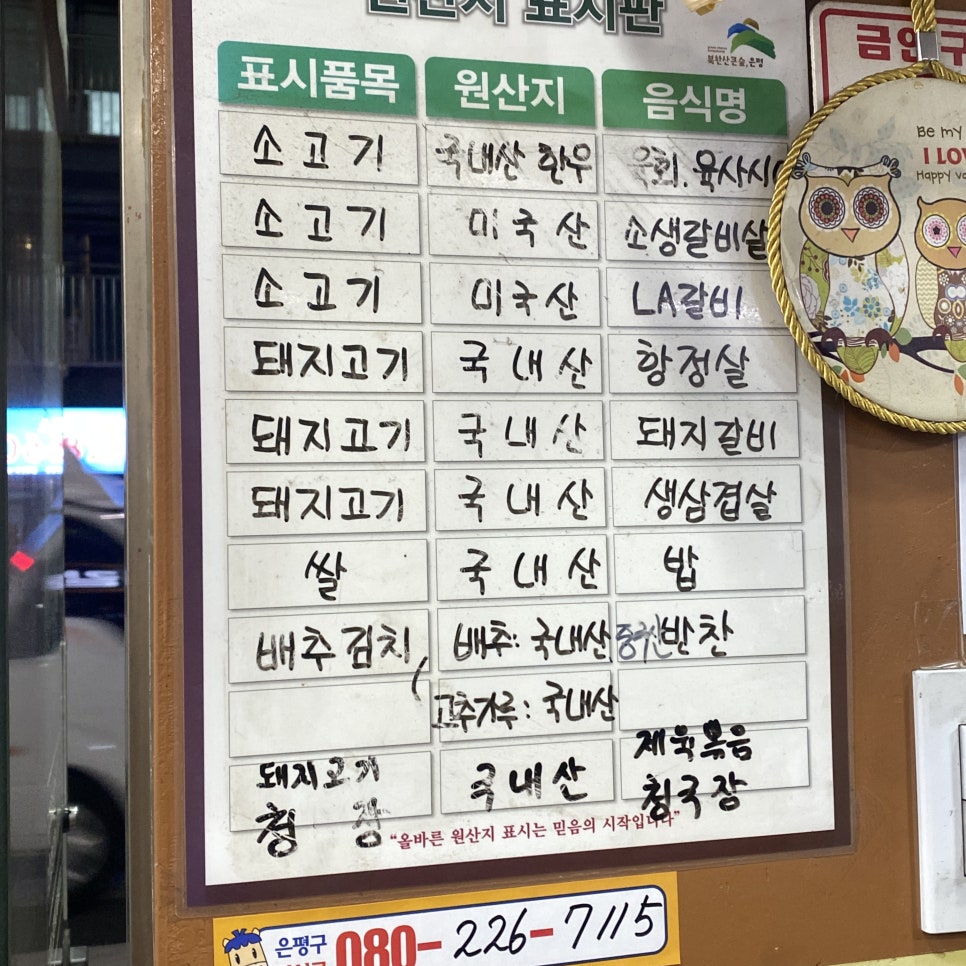 원산지 표시판
북한산큰숲, 은평
표시품목 원산지 음식명
소고기 국내산 한우 육회. 육사시
소고기 미국산 소생갈비살
소고기 미국산 LA갈비
돼지고기 국내산 항정살
돼지고기 국내산 돼지갈비
돼지고기 국내산 생삼겹살
쌀 국내산 밥
배추김치 배추: 국내산, 반찬
고추가루: 국내산
돼지고기 국내산 제육볶음
청 장 청국장
“올바른 원산지 표시는 믿음의 시작입니다”
은평구
080-226-7115
금연구
Be my
I LO
Happy va